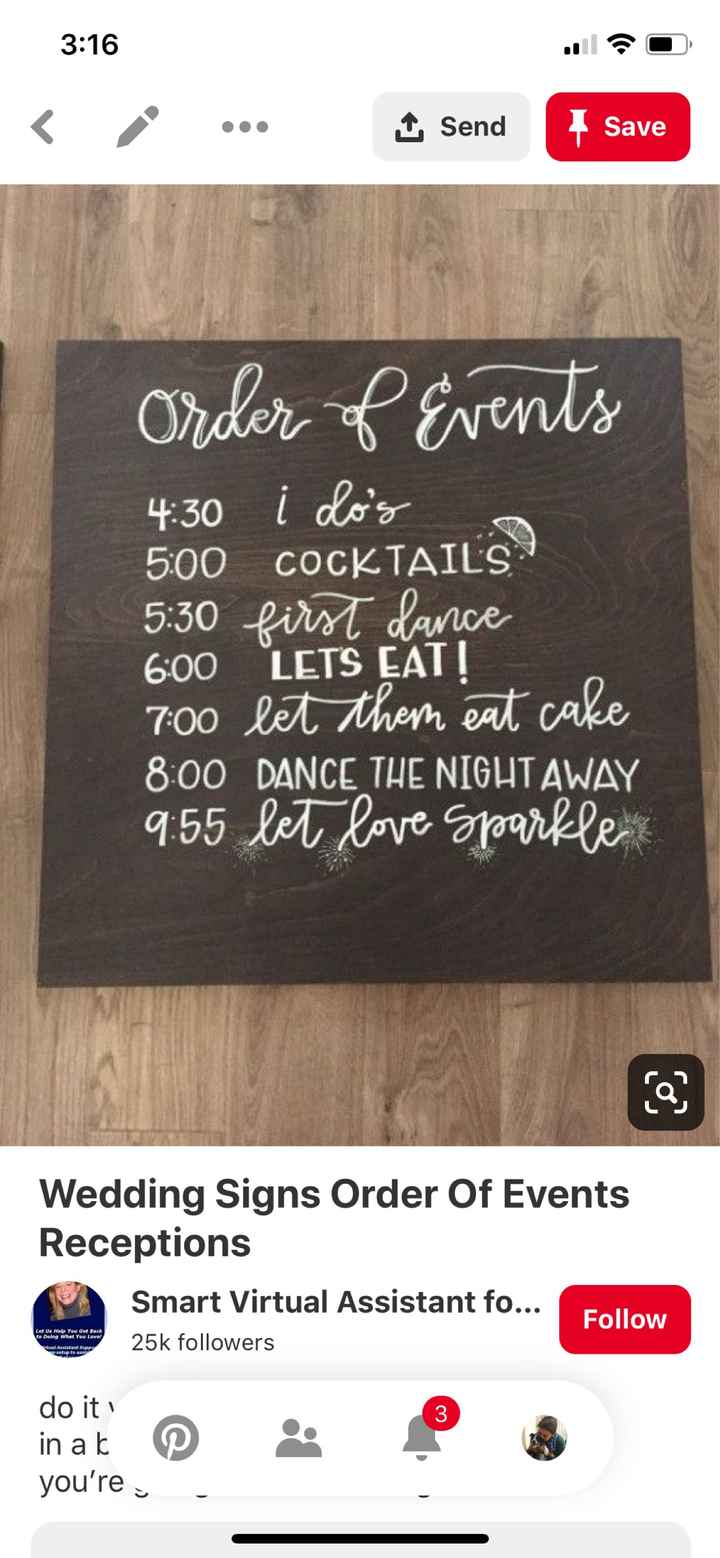 3:16
Send
Save
Order of Events
4:30 i do's
5:00 COCKTAILS
5:30 first dance
6:00 LET'S EAT!
7:00 let them eat cake
8:00 DANCE THE NIGHT AWAY
9:55 let love sparkle
Wedding Signs Order Of Events
Receptions
Smart Virtual Assistant fo...
25k followers
Follow
Let Us Help You Get Back
to Doing What You Love!
do it
in a
you're
3